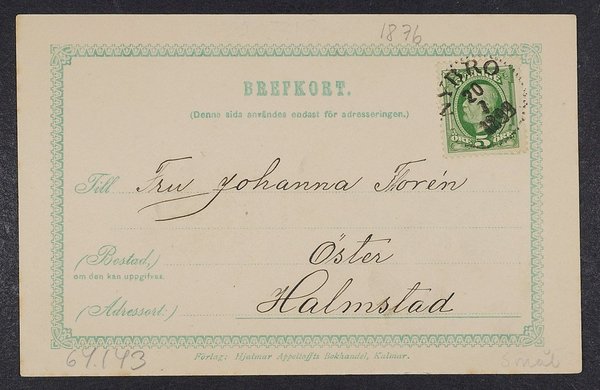 1876
NYBRO
20
1
1898
5
BREFKORT.
(Denne sida användes endast för adresseringen.)
Till Fru Johanna Florén
(Bostad,)
om den kan uppgifvas.
Öster
(Adressort.) Halmstad
64.143
Förlag: Hjalmar Appeltoffts Bokhandel, Kalmar.
Småk